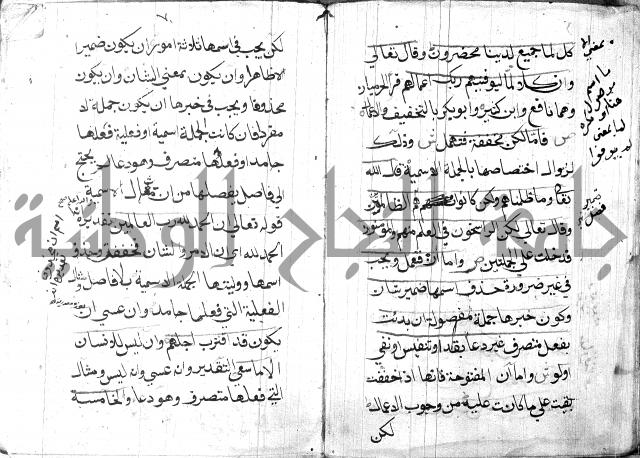 كل لما جميع لدينا محضرون وقال تعالى
وان كلا لما ليوفينهم ربك اعمالهم قرأ الحرميان
وهما نافع وابن كثير وابو بكر بالتخفيف والاعمال
ص فاما لكن مخففة فتهمل ش وذلك
لزوال اختصاصها بالجملة الاسمية قال الله
تعالى وما ظلمناهم ولكن كانوا هم الظالمين
وقال تعالى لكن الراسخون في العلم منهم والمؤمنون
فدخلت على الجملتين ص واما ان فتعمل ويجب
في غير ضرورة حذف اسمها ضمير شان
وكون خبرها جملة مفصولة ان بدئت
بفعل متصرف غير دعا بقد او تنفيس او نفي
او لو ش واما ان المفتوحة فانها اذا خففت
بقيت على ما كانت عليه من وجوب الاعمال
لكن
لكن يجب في اسمها ثلاثة امور ان يكون ضميرا
لا ظاهرا وان يكون بمعنى الشان وان يكون
محذوفا ويجب في خبرها ان يكون جملة لا
مفردا فان كانت الجملة اسمية او فعلية فعلها
جامد او فعلها متصرف وهو دعا لم يحتج
الى فاصل يفصلها من ان مثال الاسمية
قوله تعالى ان الحمد لله رب العالمين تقديره
الحمد لله اي ان الامر والشان فخففت
اسمها ووليتها الجملة الاسمية بلا فاصل ومثال
الفعلية التي فعلها جامد وان عسى ان
يكون قد اقترب اجلهم وان ليس للانسان
الا ما سعى التقدير وانه عسى وانه ليس ومثال
التي فعلها متصرف وهو دعا والخامسة
جامعة النجاح الوطنية